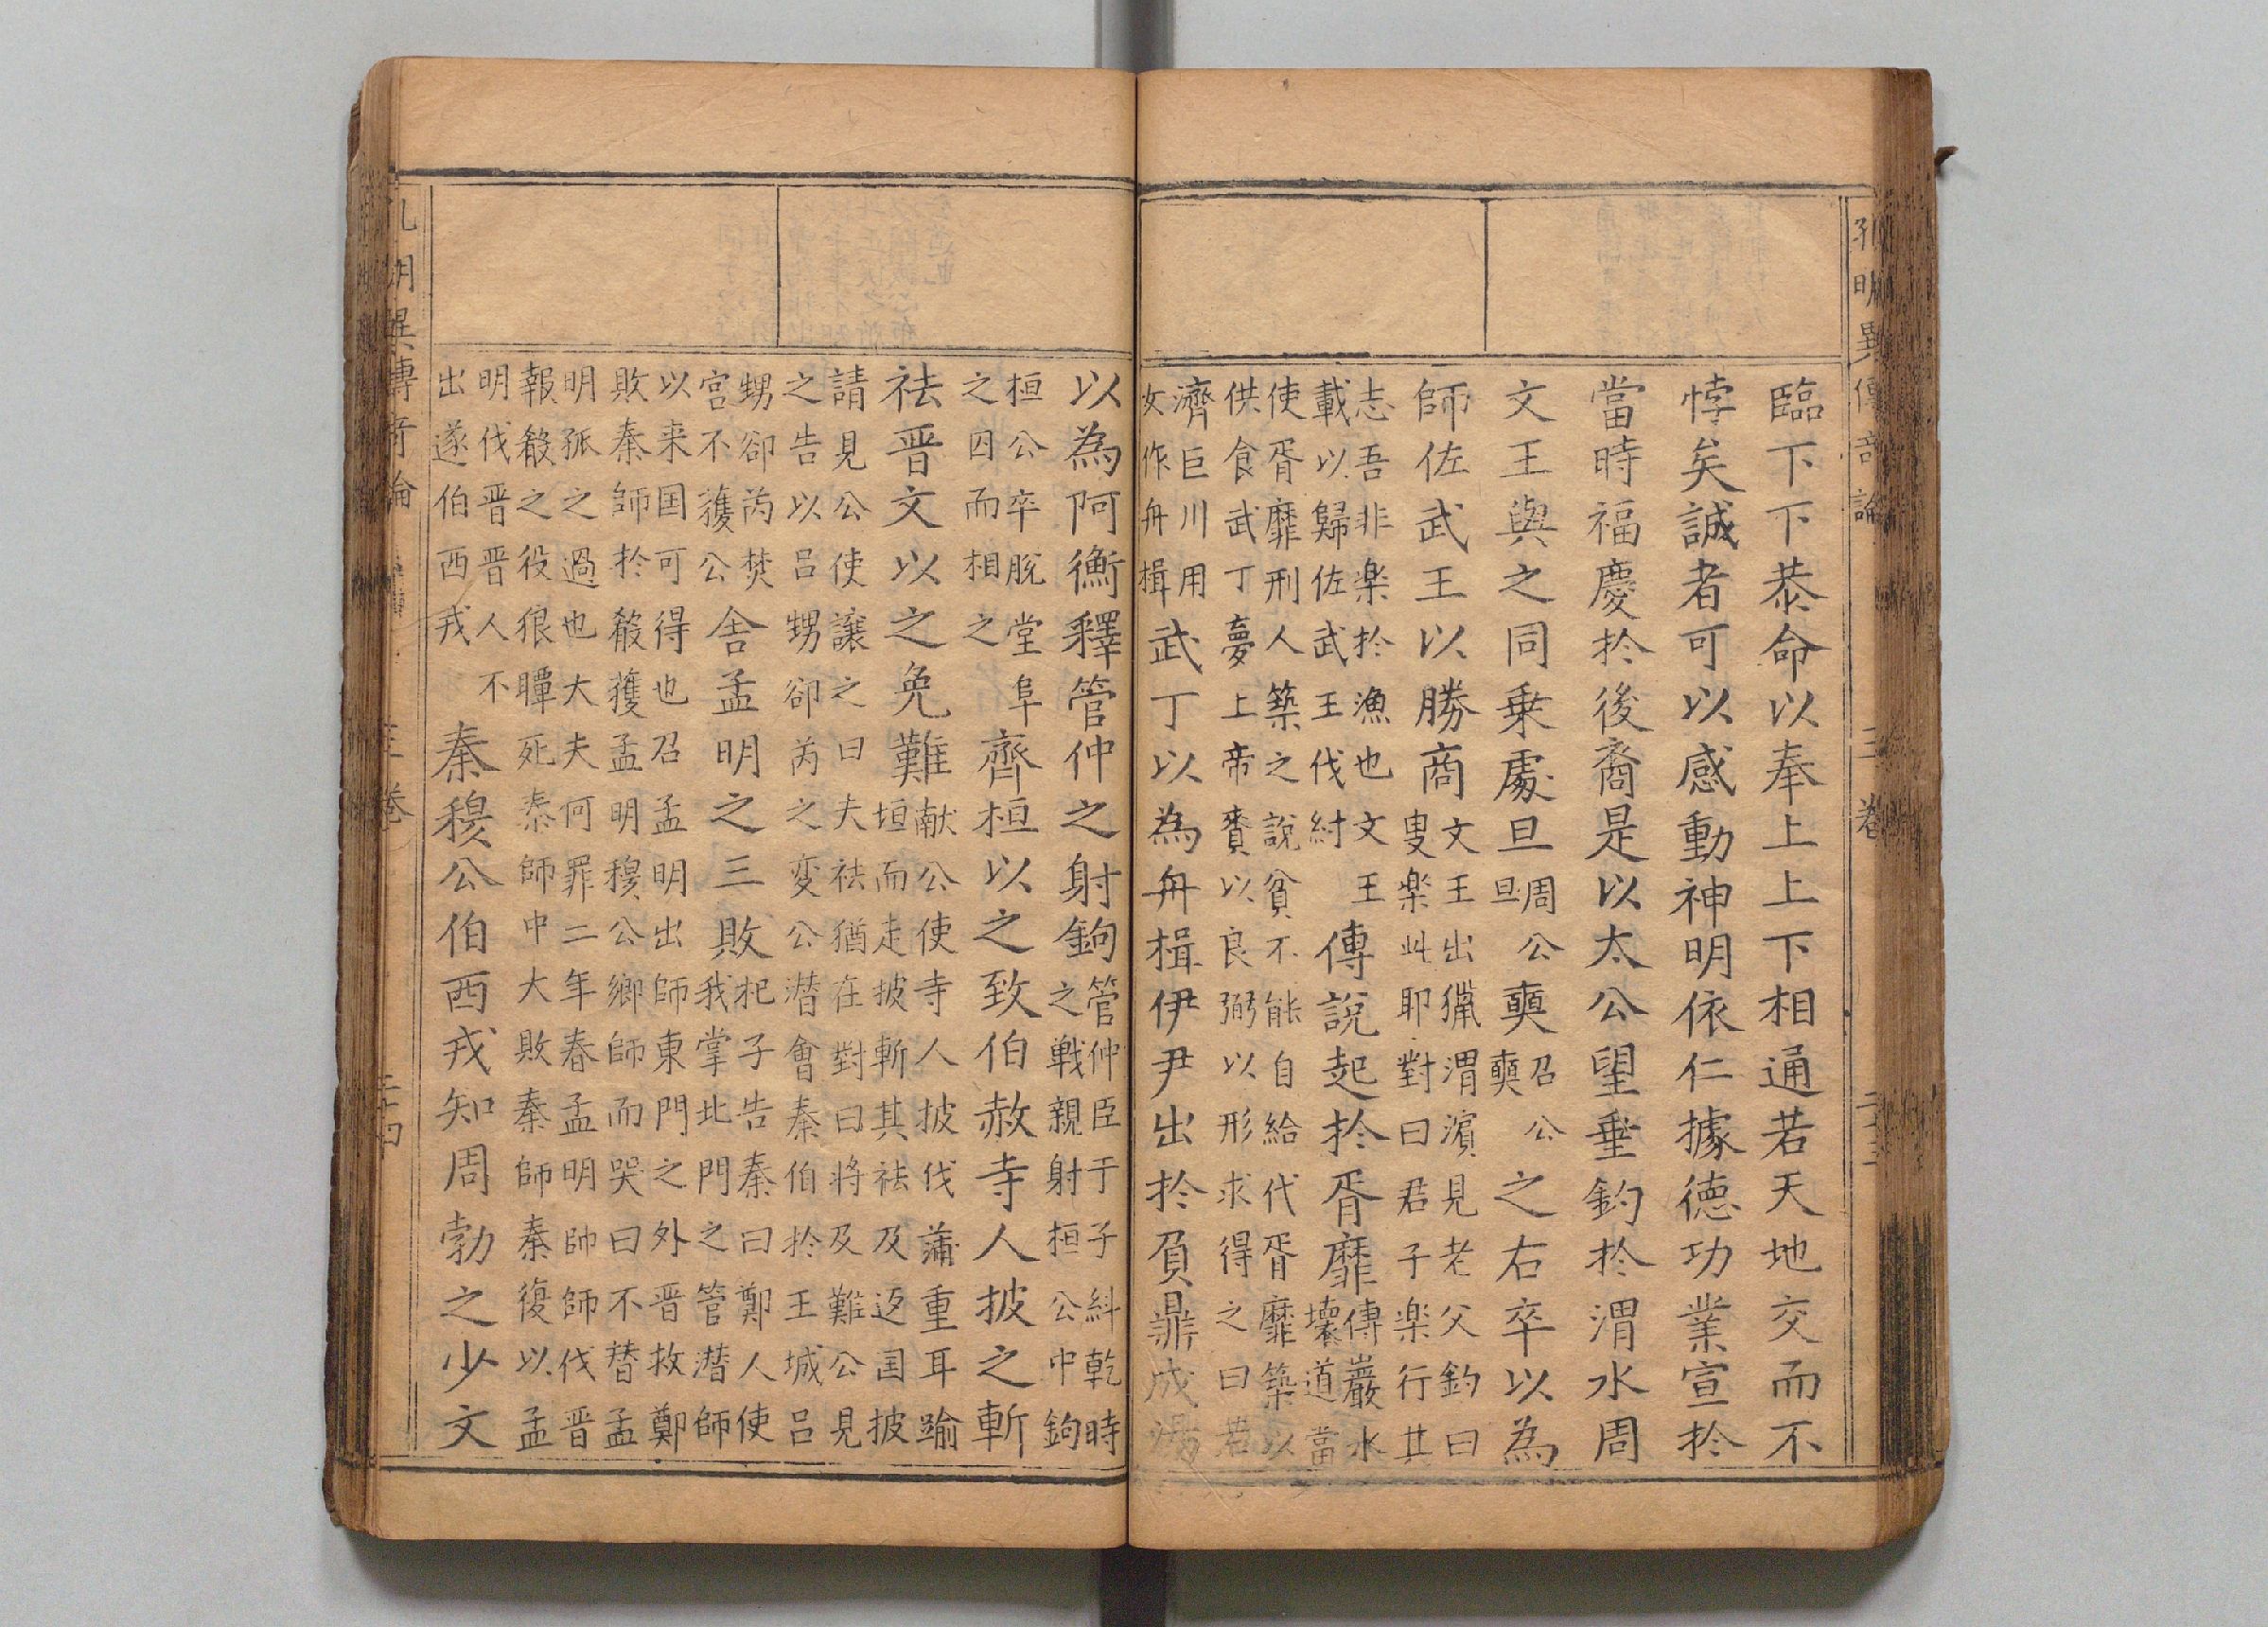 孔明異傳奇論 三卷
臨下下恭命以奉上上下相通若天地交而不
悖矣誠者可以感動神明依仁據德功業宣於
當時福慶於後裔是以太公望垂釣於渭水周
文王與之同乗處旦周公旦奭召公奭之右卒以為
師佐武王以勝商文王出獵渭濱見老父釣曰叟楽此耶對曰君子楽行其
志吾非楽於漁也文王載以歸佐武王伐紂傳說起於胥靡傳巖水壊道當
使胥靡刑人築之說貧不能自給代胥靡築以供食武丁夢上帝賚以良弼以形求得之曰若
濟巨川用汝作舟楫武丁以為舟楫伊尹出於負鼎成湯
以為阿衡釋管仲之射鉤管仲臣于子糾乾時之戦親射桓公中鉤
桓公卒脫堂阜之囚而相之齊桓以之致伯赦寺人披之斬
袪晋文以之免難献公使寺人披伐蒲重耳踰垣而走披斬其袪及返国披
請見公使讓之曰夫袪猶在對曰將及難公見之告以呂甥卻芮之変公潜會秦伯於王城呂
甥卻芮焚宮不獲公舎孟明之三敗杞子告秦曰鄭人使我掌北門之管潜師
以来国可得也召孟明出師東門之外晋救鄭敗秦師於殽獲孟明穆公鄉師而哭曰不替孟
明孤之過也大夫何罪二年春孟明帥師伐晋報殽之役狼瞫死秦師中大敗秦師秦復以孟
明伐晋晋人不出遂伯西戎秦穆公伯西戎知周勃之少文
孔明異傳奇論 三卷